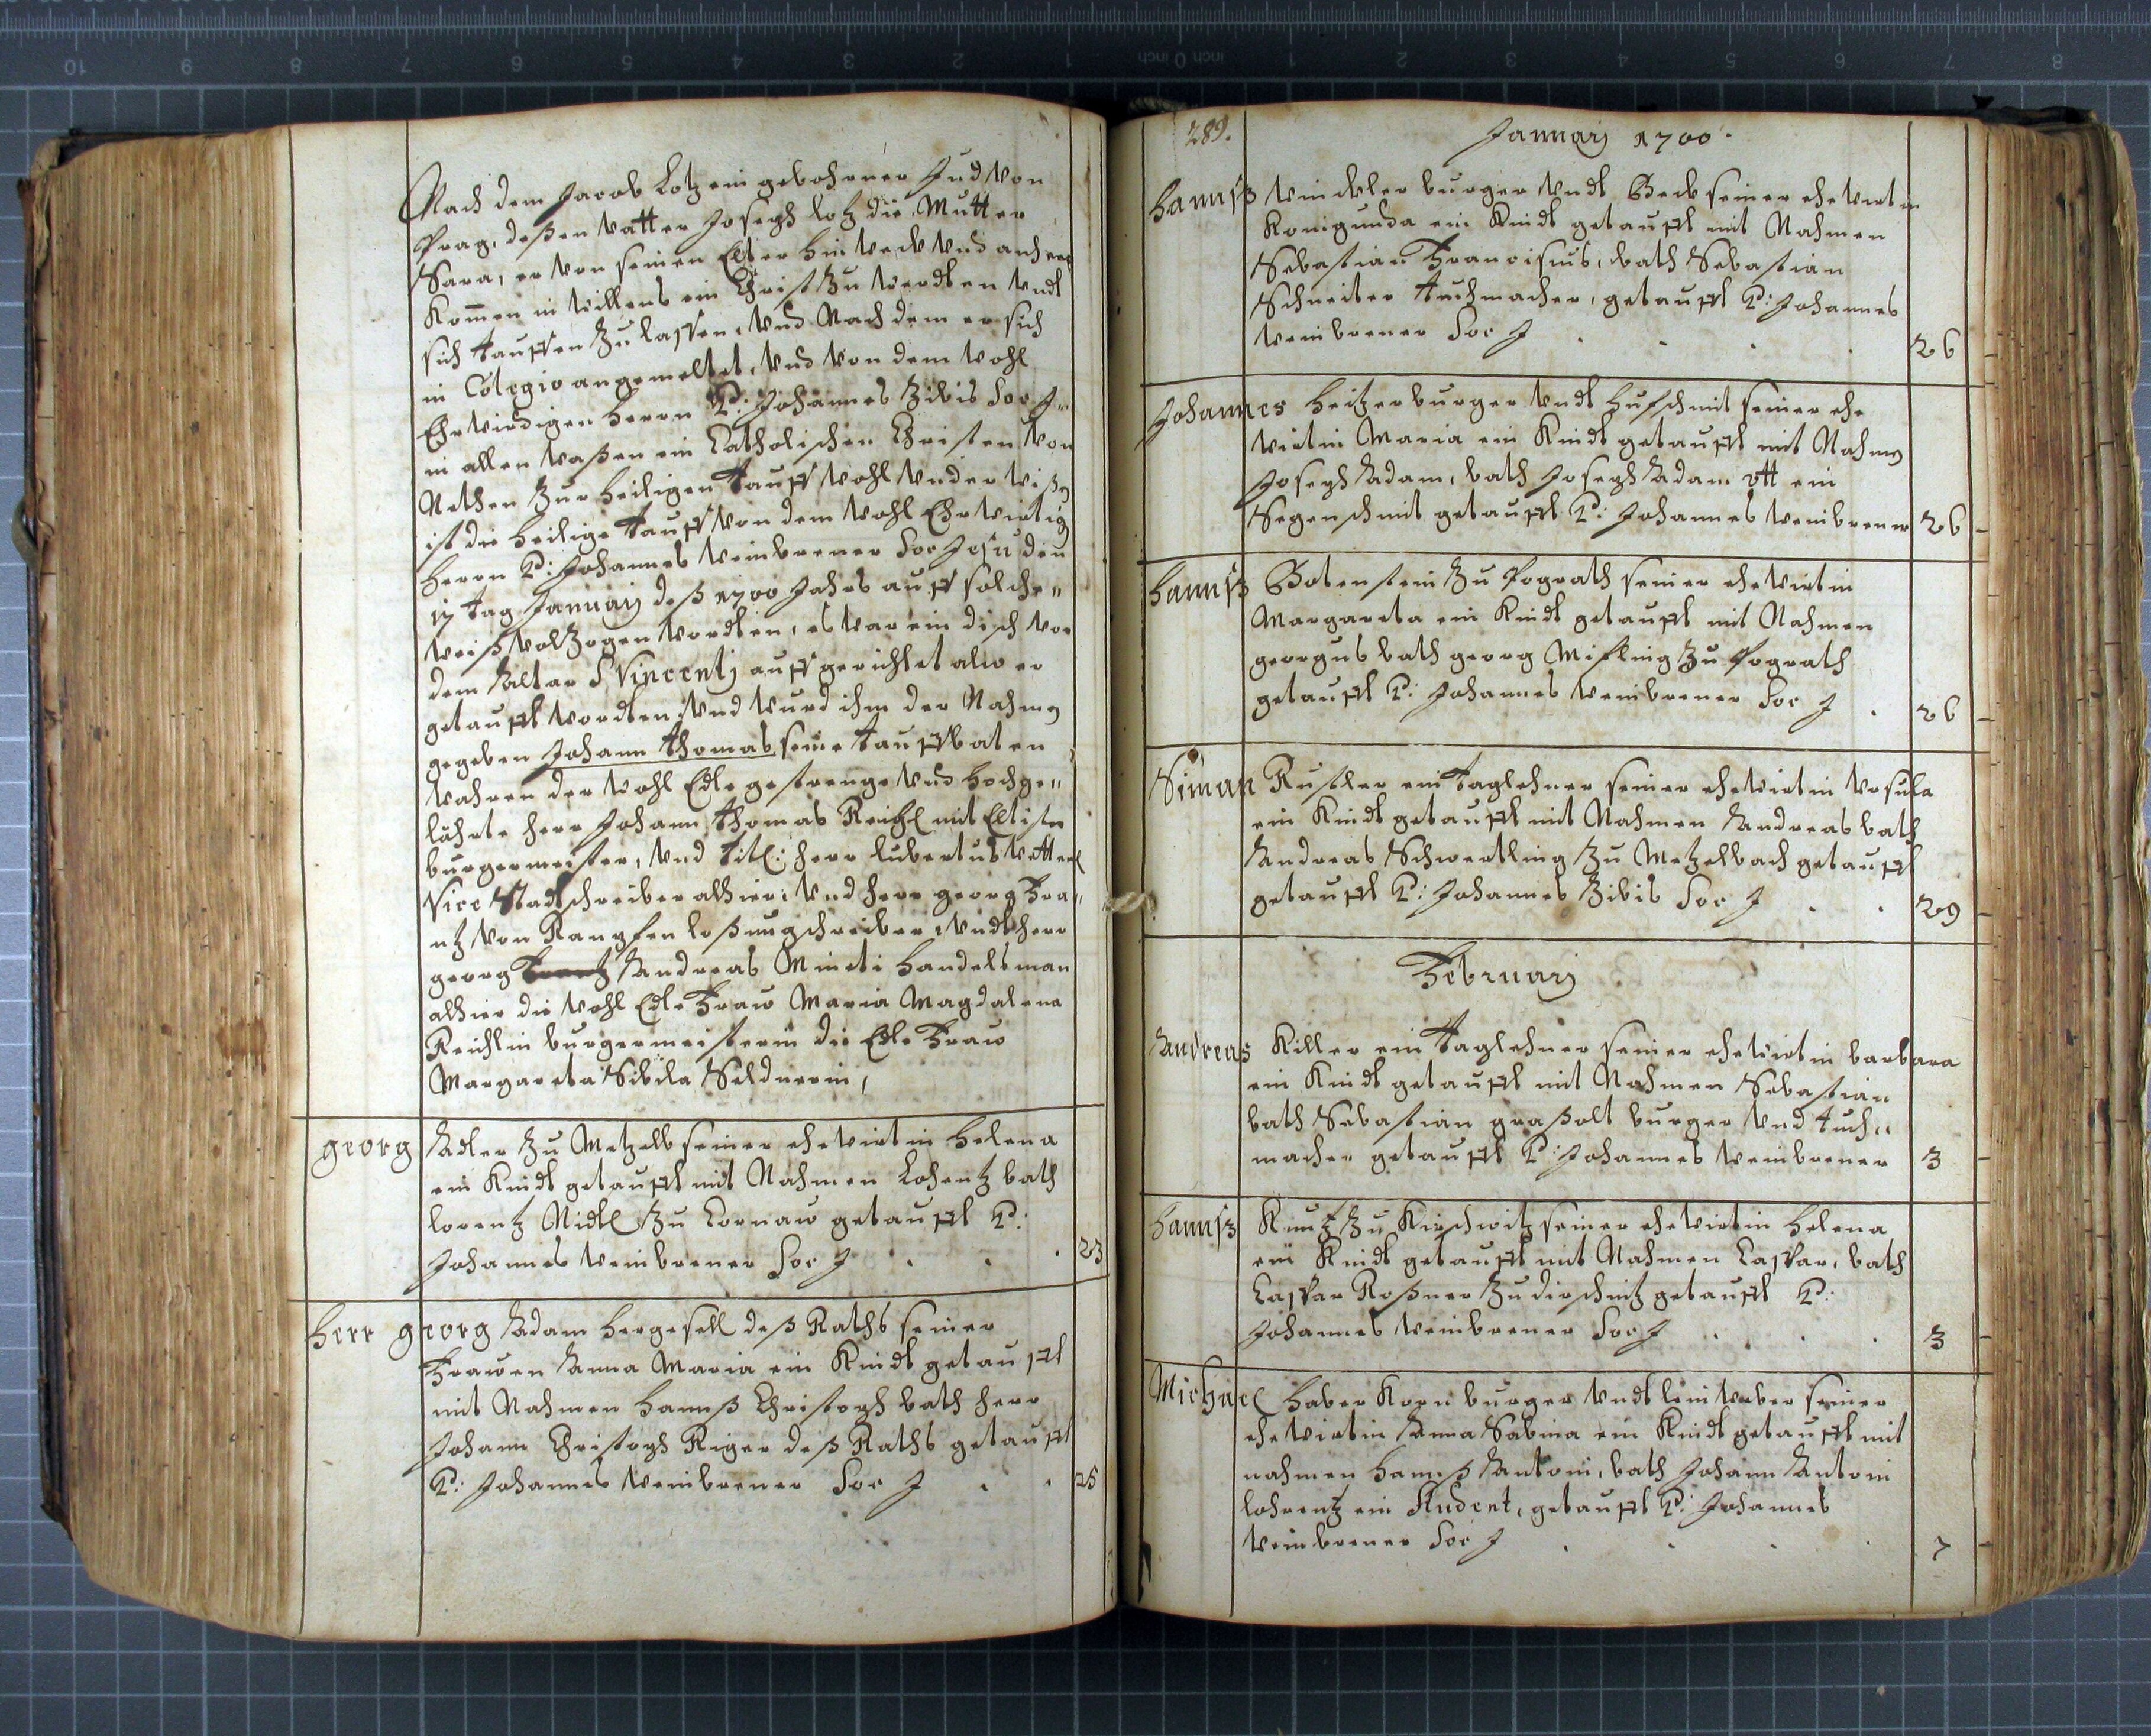 Nach dem Jacob Lotz ein gebohrner Jud von
Prag, deßen vatter Joseph lotz die Mutter
Sara, er von seinen Elter hin weck und anhero
Kom̅en in willens ein Christ zu werdten undt
sich tauffen zu lassen, und Nach dem er sich
in Colegio angemeltet, und von dem wohl
Ehrwirdigen herrn P: Johannes Zibis Soc J
in allen waßen ein Catholischen Christen von
Nethen zur heiligen tauff wohl under wißen
ist die heilige tauff von dem wohl Ehrwirtig
herrn P: Johannes weinbrener Soc Jesu den
17 tag Januarij deß 1700 Jahrs auff solche
weiß volzogen wordten, es war ein disch vor
dem Altar S Vincentj auff gerichtet alwo er
getaufft wordten, und wurd ihm der Nahmen
gegeben Johann Thomas seine tauffbaten
wahren der wohl Edle gestrenge und hochge
lährte herr Johann Thomas Reichl mit Eltister
burgermeister, und Titl: herr lubertus vetterl
Vice Stadtschreiber alhier, und herr georg Fra
ntz von Ranpfen loßungschreiber, undt herr
georg Andreas Mineti handelsman
alhier die wohl Edle Fraw Maria Magdalena
Reichlin burgermeisterin die Edle Fraw
Margareta Sibila Seldnerin,
georg Adler zu Metzelb seiner ehewirtin helena
ein Kindt getaufft mit Nahmen Lohrentz bath
lorentz Nidtl zu Cornaw getaufft P:
Johannes weinbrener Soc J 23
Herr georg Adam hergesell deß Raths seiner
Frawen Anna Maria ein Kindt getaufft
mit Nahmen hannß Christoph bath herr
Johann Christoph Riger deß Raths getaufft
P: Johannes weinbrener Soc J 25
289. Januarij 1700.
Hannß winckler burger undt Beck seiner ehewirtin
Konigunda ein Kindt getaufft mit Nahmen
Sebastian Francisius, bath Sebastian
Schneiter tuchmacher, getaufft P: Johannes
weinbrener Soc J 26
Johannes heitzer burger undt hufschmit seiner ehe
wirtin Maria ein Kindt getaufft mit Nahmen
Joseph Adam, bath Joseph Adam ott ein
Segenschmit getaufft P: Johannes weinbrener 26
Hannß Botenstein zu Pograth seiner ehewirtin
Margareta ein Kindt getaufft mit Nahmen
georgus bath georg Misling zu Pograth
getaufft P: Johannes weinbrener Soc J 26
Siman Rustler ein taglehner seiner ehewirtin Ursula
ein Kindt getaufft mit Nahmen Andreas bath
Andreas Schwertling zu Metzelbach getaufft
getaufft P: Johannes Zibis Soc J 29
Februarij
Andreas Killer ein taglehner seiner ehewirtin barbara
ein Kindt getaufft mit Nahmen Sebastian
bath Sebastian graßolt burger und tuch
macher getaufft P: Johannes weinbrener 3
Hannß Kuntz zu Kirschwitz seiner ehewirtin helena
ein Kindt getaufft mit Nahmen Caspar, bath
Caspar Roßner zu dirschnitz getaufft P:
Johannes weinbrener Soc J 3
Michael haber Korn burger undt leinweber seiner
ehewirtin Anna Sabina ein Kindt getaufft mit
nahmen hannß Antoni, bath Johann Antoni
lohrentz ein Student, getaufft P: Johannes
weinbrener Soc J 7
10 9 8 7 6 5 4 3 2 1 inch 0 inch 1 2 3 4 5 6 7 8